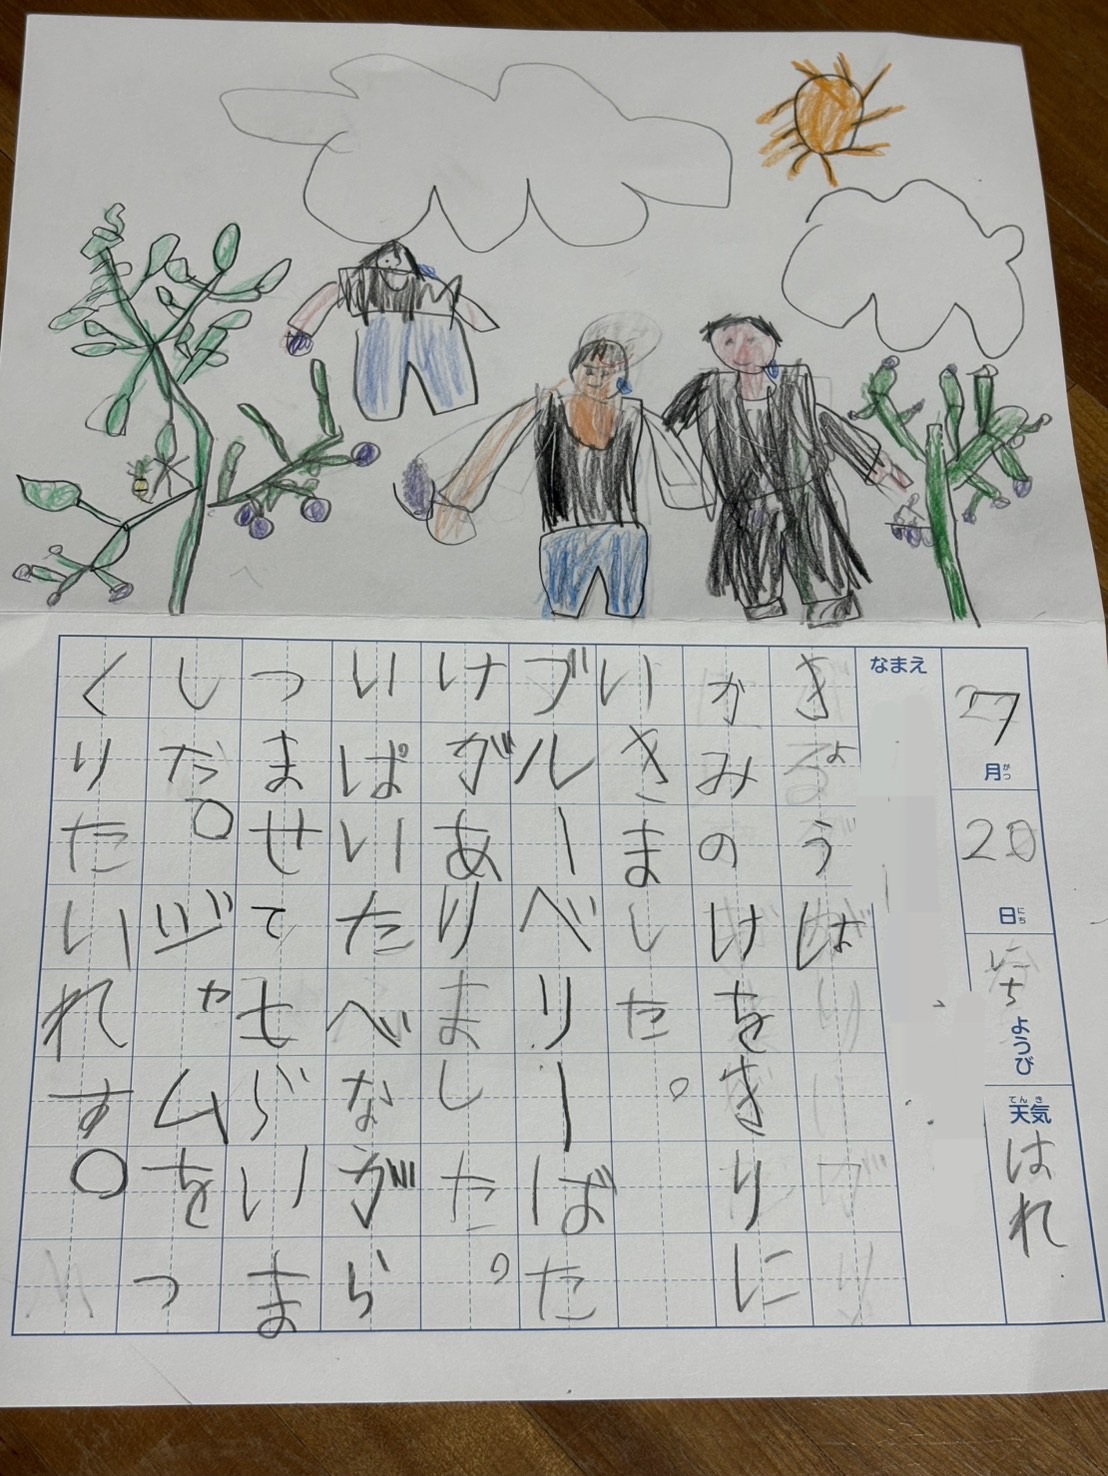 7月がつ
20日にち
にちようび
天気てんき
はれ
なまえ
きょうは
かみのけをきりに
いきました。
ブルーベリーばた
けがありました。
いぱいたべながら
つませてもらいま
した。ジャムをつ
くりたいれす。